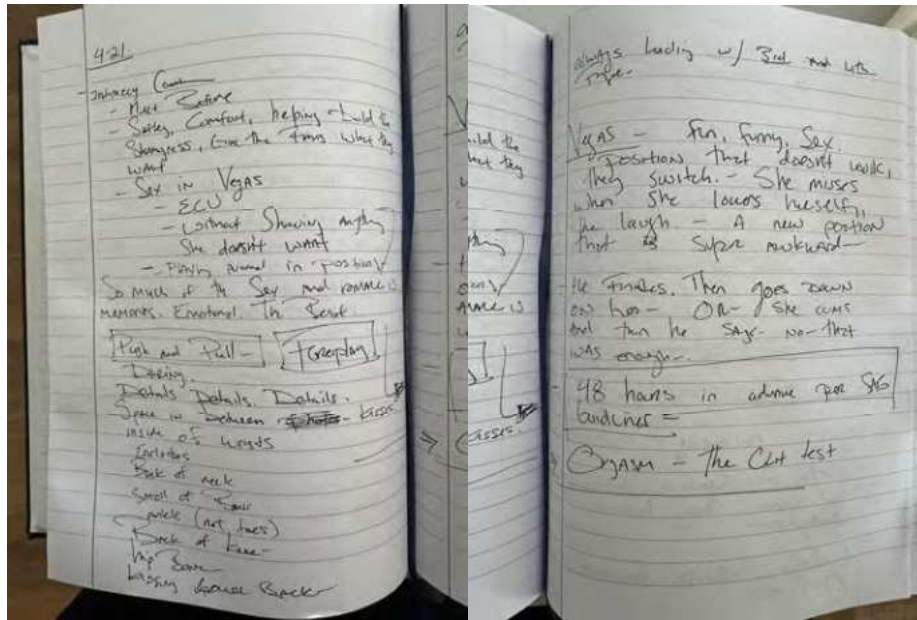 4-21
- Intimacy
- Meet Before
- Safety, Comfort, helping build the
Story, Give the fans what they
want
- Sex in Vegas
- ECU
- without Showing anything
She doesn't want
- Playing in position
So much of the Sex and romance is
memories. Emotional. The Best
Push and Pull - Foreplay
Daring.
Details Details. Details.
Space in between kisses
inside of wrists
Back of neck
Smell of
ankle (not toes)
Back of knee -
hip Bone
kissing lower Back
always leading w/ 3rd and 4th
Vegas - fun, funny, Sex.
position that doesn't work,
they switch. - She misses
when she lowers herself,
he laughs - A new position
that is super awkward -
He finishes. Then goes down
on her - OR - She cums
and then he says - no - that
was enough -
48 hours in advance per SAG
guidelines =
Orgasm - The test